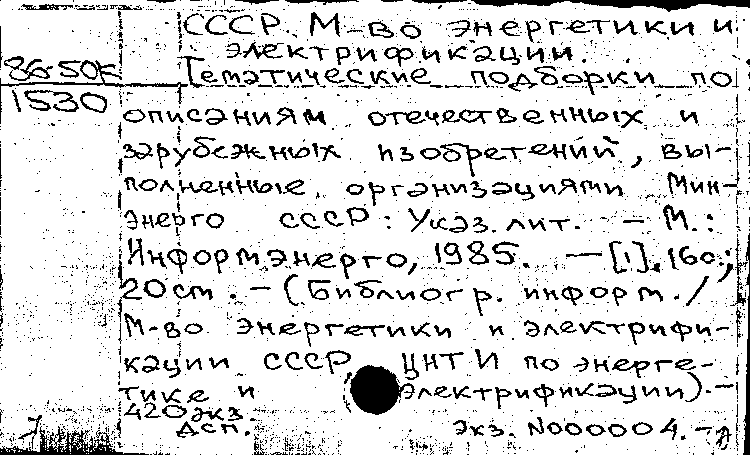 СССР. М-во энергетики и
электрификации.
86-50К
Тематические подборки по
1530
описаниям отечественных и
зарубежных изобретений, вы-
полненные организациями Мин-
энерго СССР: Указ. лит. – М.:
Информэнерго, 1985. – [1], 16с.;
20 см. – (Библиогр. информ. /
М-во энергетики и электрифи-
кации СССР, ЦНТИ по энерге-
тике и электрификации). –
420 экз.
Дсп.
Экз. N000004. –